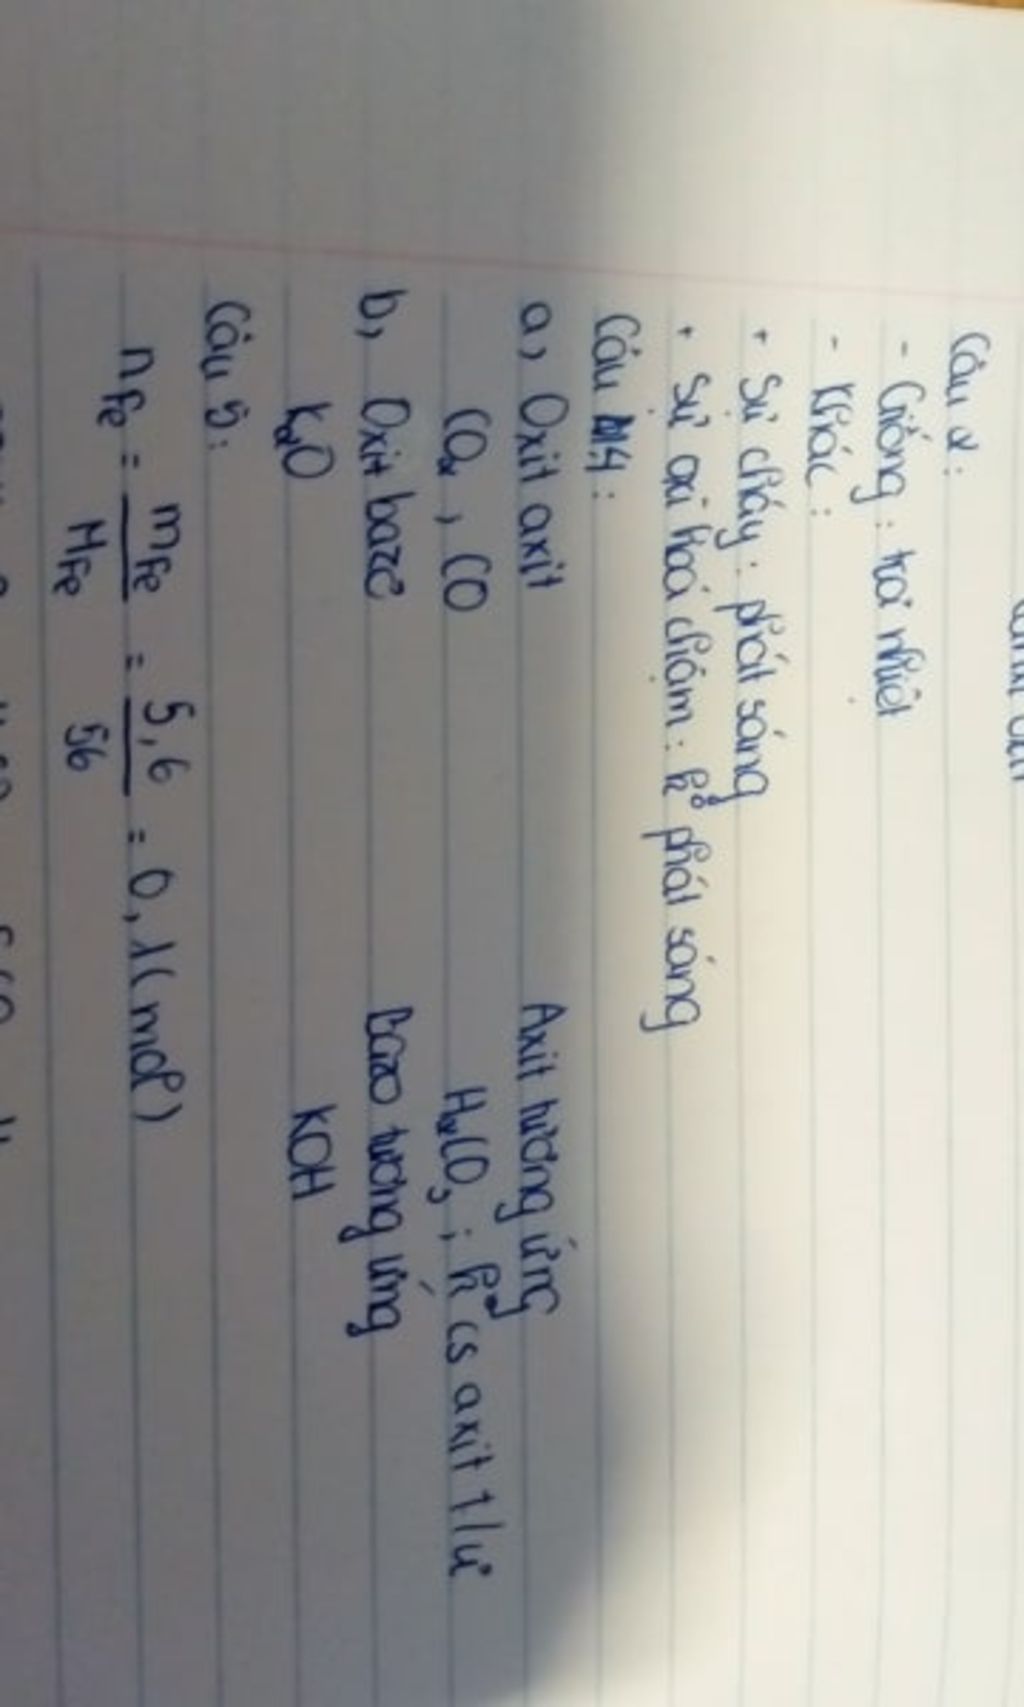 Câu 2:
- Giống: toả nhiệt
- Khác:
+ Sự cháy: phát sáng
+ Sự oxi hoá chậm: k° phát sáng
Câu 4:
a, Oxit axit Axit tương ứng
CO₂, CO H₂CO₃; k° cs axit t/ư
b, Oxit bazơ Bazơ tương ứng
K₂O KOH
Câu 5:
nFe = mFe / MFe = 5,6 / 56 = 0,1 (mol)